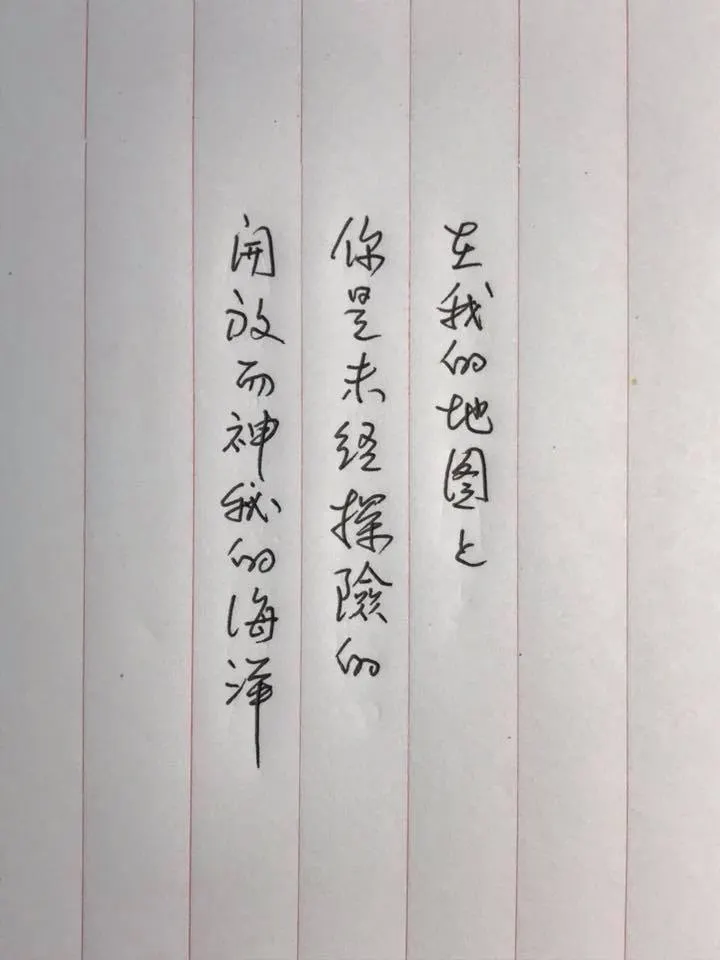 在我的地图上
你是未经探險的
開放而神秘的海洋